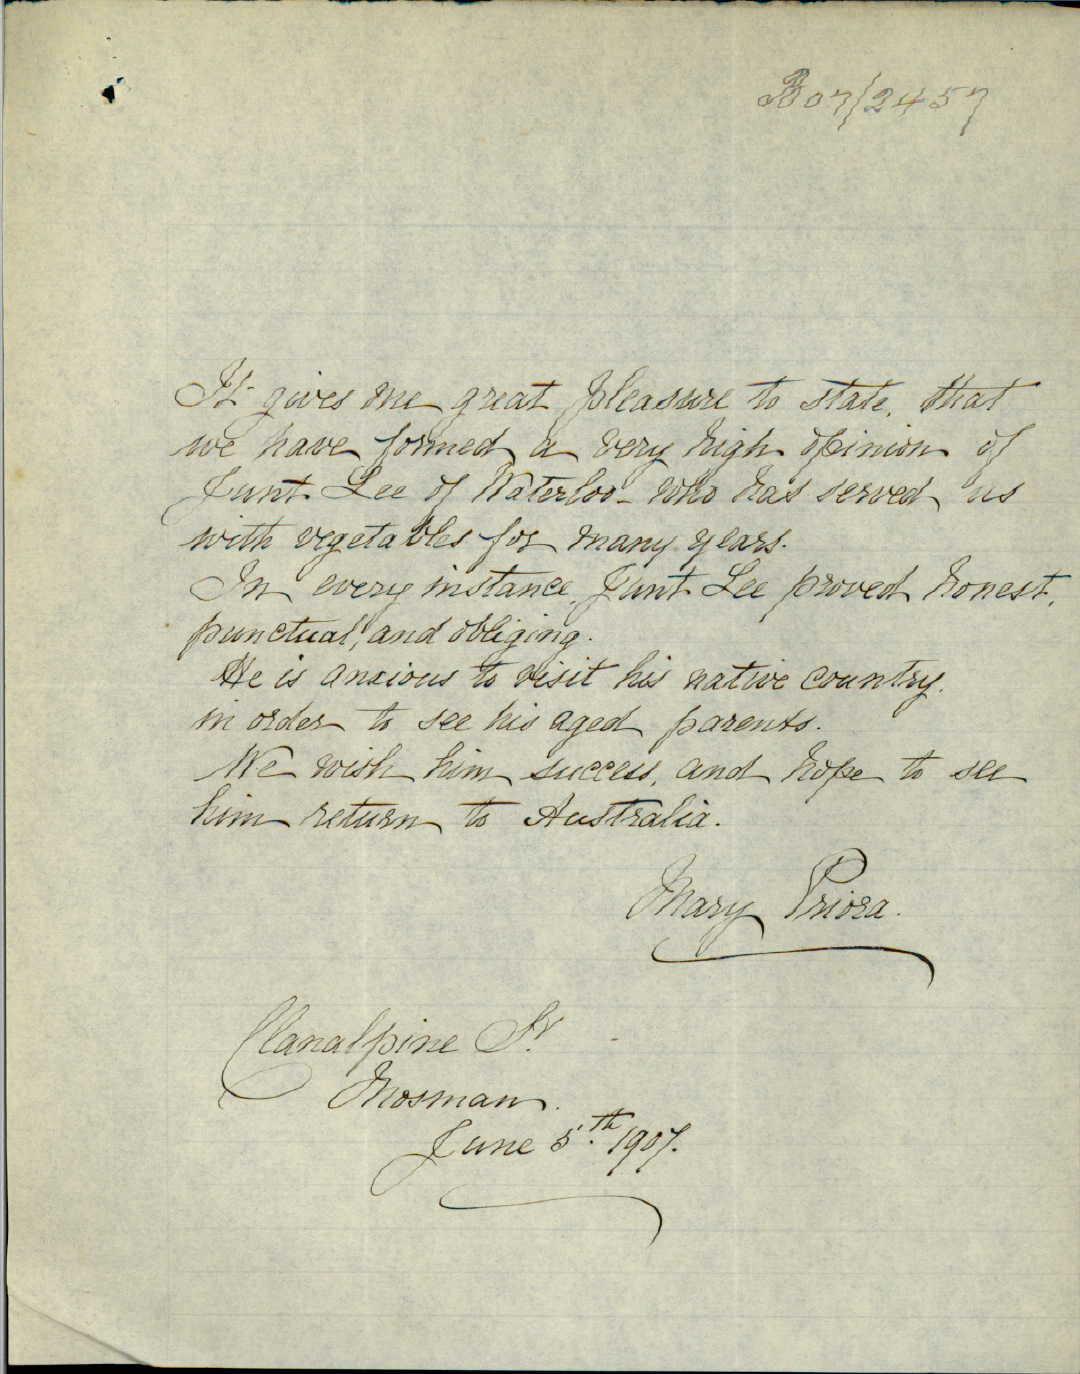 B07/2457
It gives me great pleasure to state, that
we have formed a very high opinion of
Junt Lee of Waterloo - who has served us
with vegetables for many years.
In every instance, Junt Lee proved honest,
punctual, and obliging.
He is anxious to visit his native country,
in order to see his aged parents.
We wish him success, and hope to see
him return to Australia.
Mary Priora.
Clanalpine St.
Mosman.
June 5th. 1907.